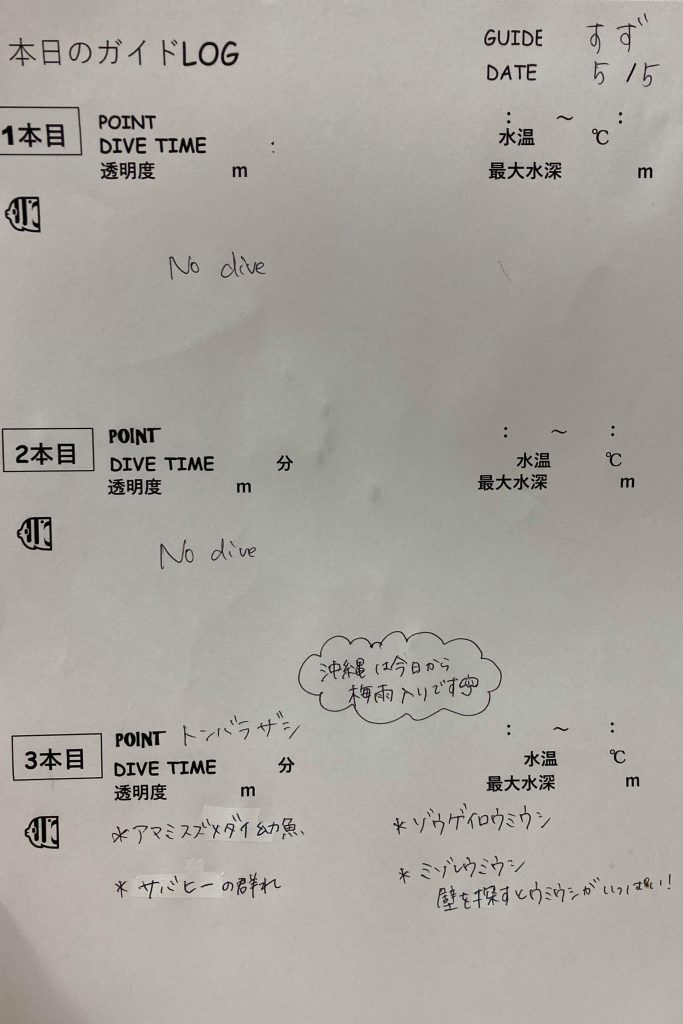 本日のガイドLOG
GUIDE すず
DATE 5/5
1本目
POINT
DIVE TIME :
透明度 m
: ～ :
水温 ℃
最大水深 m
No dive
2本目
POINT
DIVE TIME 分
透明度 m
: ～ :
水温 ℃
最大水深 m
No dive
沖縄は今日から
梅雨入りです
3本目
POINT トンバラザシ
DIVE TIME 分
透明度 m
: ～ :
水温 ℃
最大水深 m
*アマミスズメダイ幼魚、
*サバヒーの群れ
*ゾウゲイロウミウシ
*ミゾレウミウシ
壁を探すとウミウシがいっぱい!